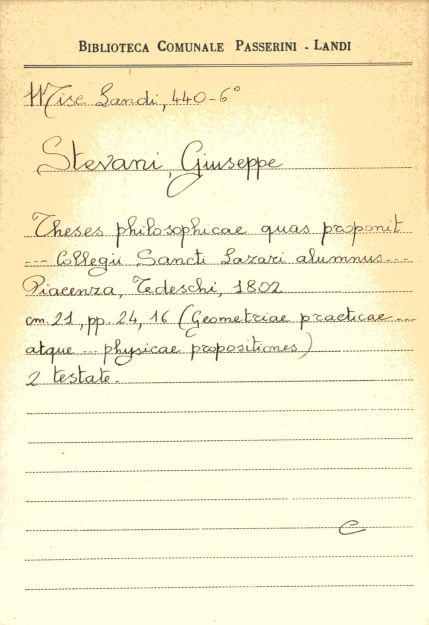 BIBLIOTECA COMUNALE PASSERINI - LANDI
Misc Landi, 440-6°
Stevani, Giuseppe
Theses philosophicae quas proponit
--- Collegii Sancti Lazari alumnus ---
Piacenza, Tedeschi, 1802
cm. 21, pp. 24, 16 (Geometriae practicae ---
atque --- physicae propositiones)
2 testate.
C